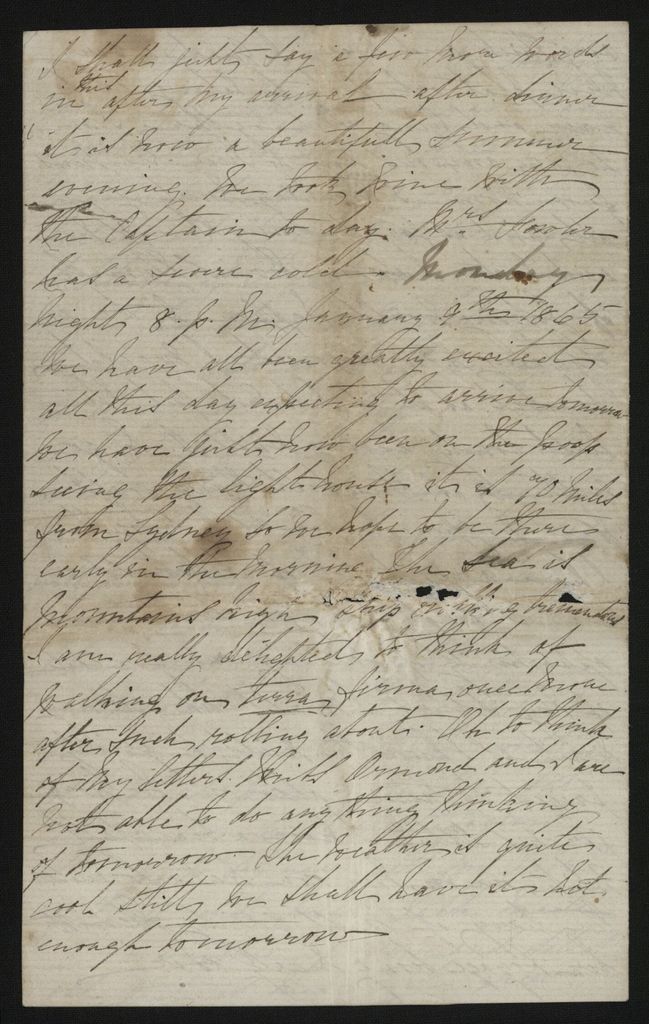 I shall just say a few more words
in this after my arrival after dinner
it is now a beautifull summer
evening. We took wine with
the Captain to day. Mrs Fowler
has a severe cold. Monday
night 8. p. M. January 9th 1865
We have all been greatly excited
all this day expecting to arrive tomorrow
We have just now been on the poop
seeing the light house it is 70 miles
from Sydney so we hope to be there
early in the morning The sea is
mountains high ship rolling
I am really delighted to think of
walking on terra firma once more
after such rolling about. Oh to think
of my letters. Miss Ormond and I are
not able to do anything thinking
of tomorrow. The weather is quite
cool still, we shall have it hot
enough tomorrow